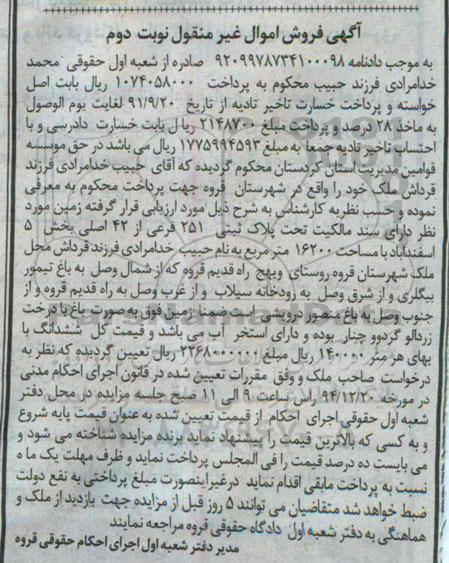 آگهی فروش اموال غیر منقول نوبت دوم
به موجب دادنامه ۹۲۰۹۹۷۸۷۳۴۱۰۰۰۹۸ صادره از شعبه اول حقوقی محمد
خدامرادی فرزند حبیب محکوم به پرداخت ۱۰۷۴۰۵۸۰۰۰ ریال بابت اصل
خواسته و پرداخت خسارت تاخیر تادیه از تاریخ ۹۱/۹/۲۰ لغایت یوم الوصول
به ماخذ ۲۸ درصد و پرداخت مبلغ ۲۱۴۸۷۰۰۰ ریال بابت خسارت دادرسی و با
احتساب تاخیر تادیه جمعا به مبلغ ۱۷۷۵۹۹۴۵۹۳ ریال می باشد در حق موسسه
قوامین مدیریت استان کردستان محکوم گردیده که آقای حبیب خدامرادی فرزند
قرداش ملک خود را واقع در شهرستان قروه جهت پرداخت محکوم به معرفی
نموده و حسب نظریه کارشناس به شرح ذیل مورد ارزیابی قرار گرفته زمین مورد
نظر دارای سند مالکیت تحت پلاک ثبتی ۲۵۱ فرعی از ۴۲ اصلی بخش ۵
اسفنداباد با مساحت ۱۶۲۰۰ متر مربع به نام حبیب خدامرادی فرزند قرداش محل
ملک شهرستان قروه روستای ویهج راه قدیم قروه که از شمال وصل به باغ تیمور
بیگلری و از شرق وصل به رودخانه سیلاب و از غرب وصل به راه قدیم قروه و از
جنوب وصل به باغ منصور درویشی است ضمنا زمین فوق به صورت باغ با درخت
زردالو گردو و چنار بوده و دارای استخر آب می باشد و قیمت کل ششدانگ با
بهای هر متر ۱۴۰۰۰۰ ریال مبلغ ۲۲۶۸۰۰۰۰۰۰ ریال تعیین گردیده که نظر به
درخواست صاحب ملک و وفق مقررات تعیین شده در قانون اجرای احکام مدنی
در مورخه ۹۴/۱۲/۲۰ راس ساعت ۹ الی ۱۱ صبح جلسه مزایده در محل دفتر
شعبه اول حقوقی اجرای احکام از قیمت تعیین شده به عنوان قیمت پایه شروع
و به کسی که بالاترین قیمت را پیشنهاد نماید برنده مزایده شناخته می شود و
می بایست ده درصد قیمت را فی المجلس پرداخت نماید و ظرف مهلت یک ماه
نسبت به پرداخت مابقی اقدام نماید درغیراینصورت مبلغ پرداختی به نفع دولت
ضبط خواهد شد متقاضیان می توانند ۵ روز قبل از مزایده جهت بازدید از ملک و
هماهنگی به دفتر شعبه اول دادگاه حقوقی قروه مراجعه نمایند
مدیر دفتر شعبه اول اجرای احکام حقوقی قروه